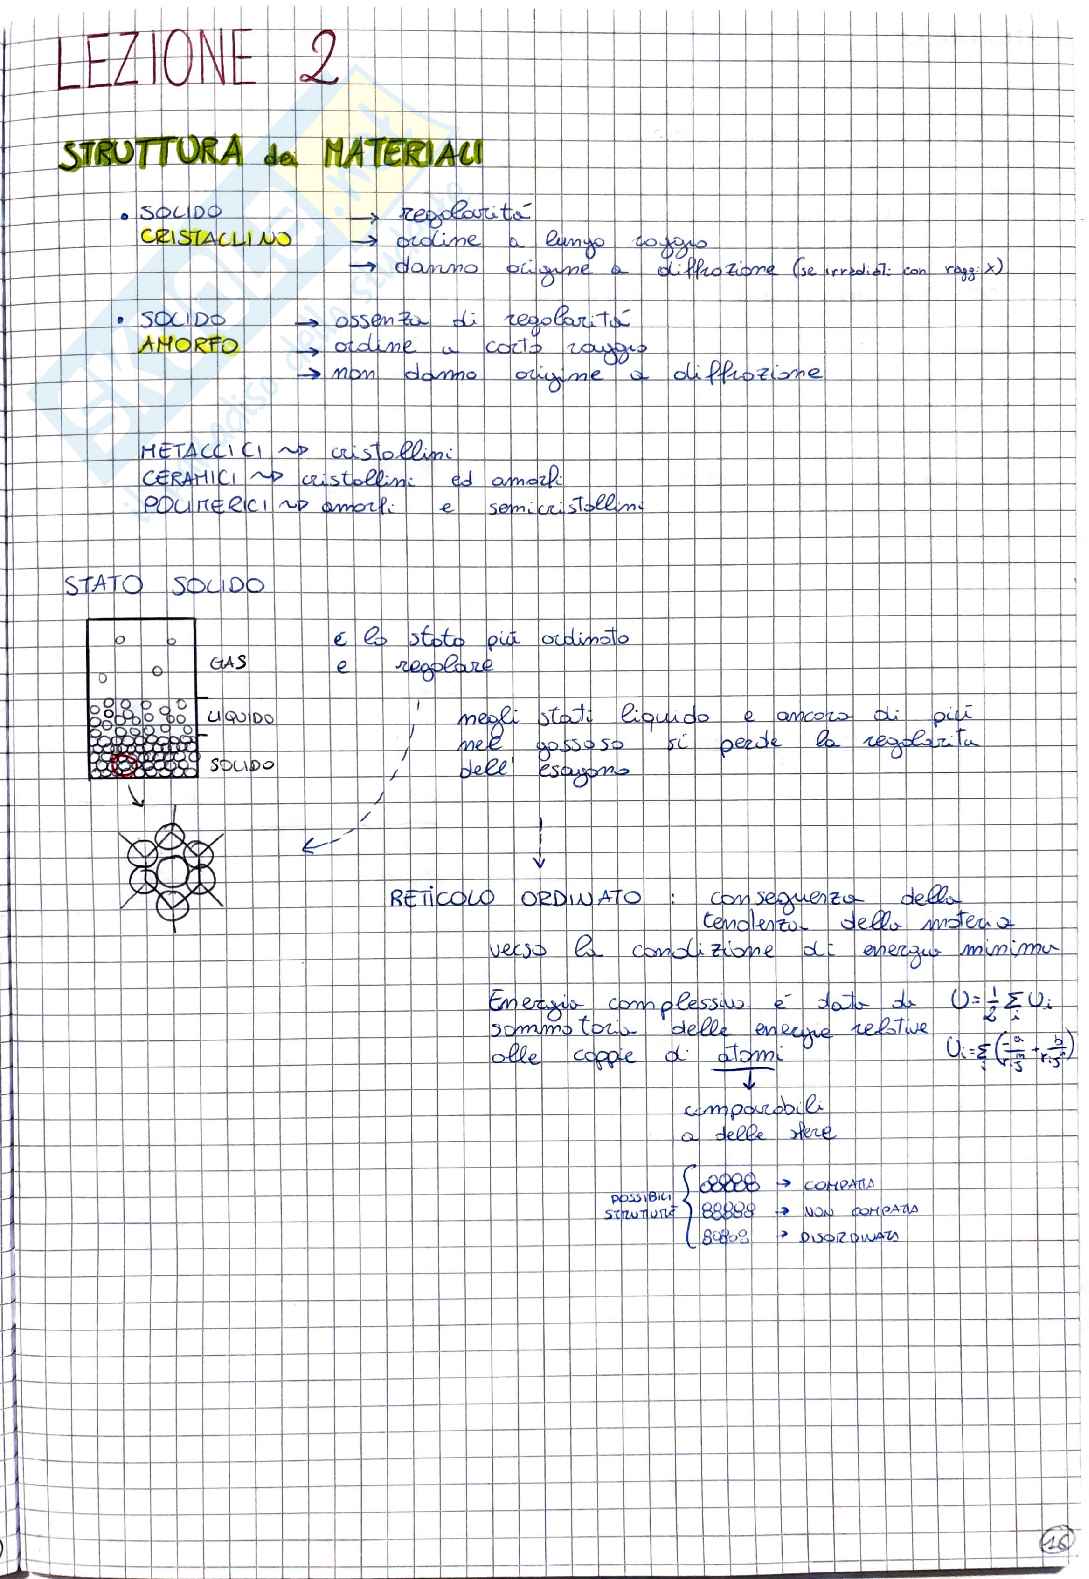 LEZIONE 2
STRUTTURA dei MATERIALI
• SOLIDO → regolarità
CRISTALLINO → ordine a lungo raggio
→ danno origine a diffrazione (se irradiati con raggi X)
• SOLIDO → assenza di regolarità
AMORFO → ordine a corto raggio
→ non danno origine a diffrazione
METALLICI ~> cristallini
CERAMICI ~> cristallini ed amorfi
POLIMERICI ~> amorfi e semicristallini
STATO SOLIDO
è lo stato più ordinato
GAS e regolare
LIQUIDO negli stati liquido e ancora di più
nel gassoso si perde la regolarità
SOLIDO dell'esagono
RETICOLO ORDINATO : conseguenza della
tendenza della materia
verso la condizione di energia minima
Energia complessiva è data da U=½ Σi Ui
sommatoria delle energie relative
alle coppie di atomi Ui=Σj(-a/rijm + b/rijn)
↓
comparabili
a delle sfere
POSSIBILI → COMPATTA
STRUTTURE → NON COMPATTA
→ DISORDINATA
16
SKUOLA.net
il paradiso dello studente